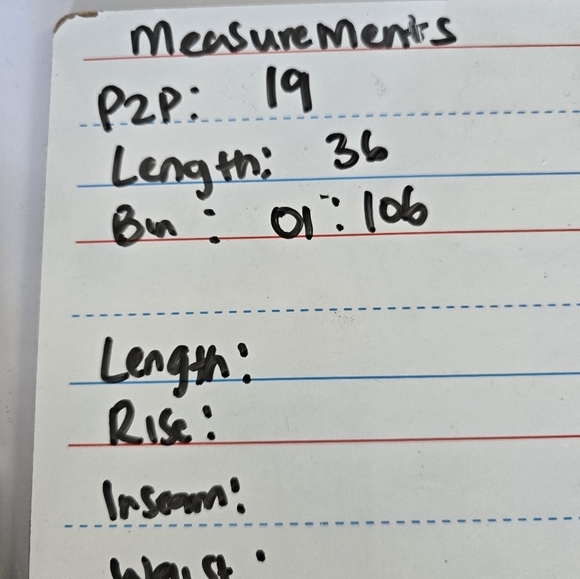 Measurements
P2P: 19
Length: 36
Bin : 01 : 106
Length:
Rise:
Inseam:
Waist: